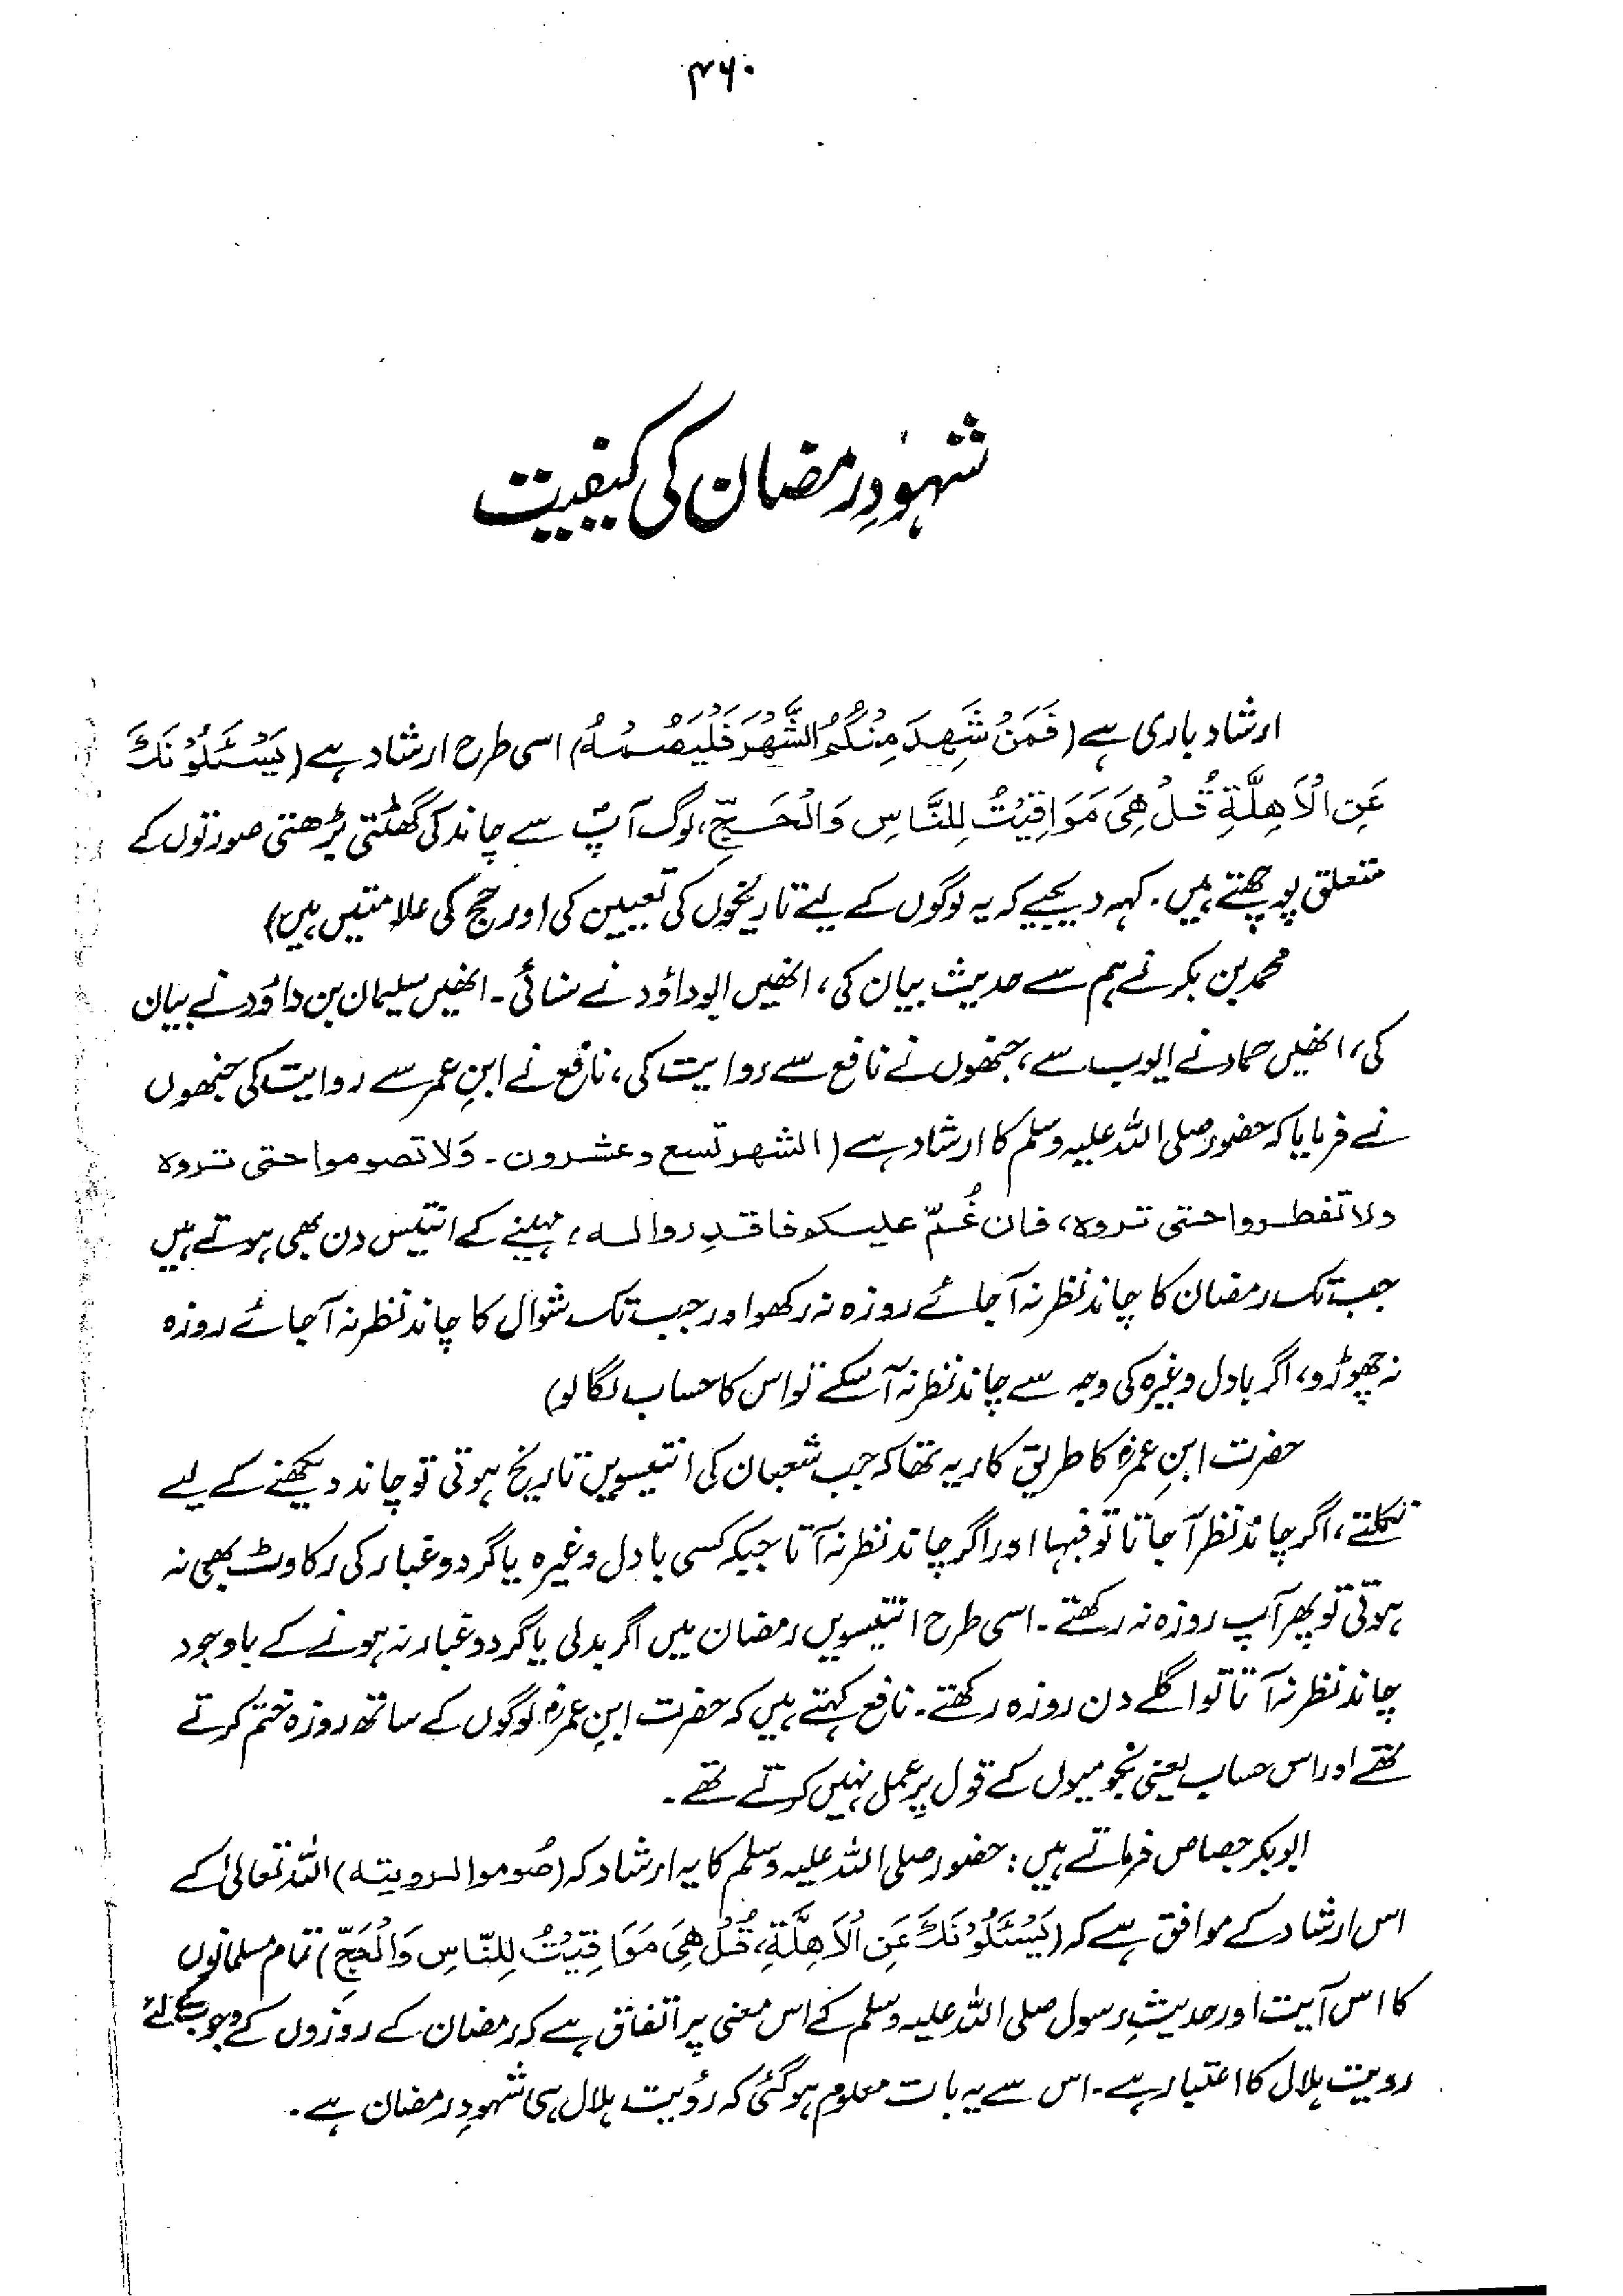 ۴۶۰
شہودِ رمضان کی کیفیت
ارشاد باری ہے (فَمَنْ شَهِدَ مِنْكُمُ الشَّهْرَ فَلْيَصُمْهُ) اسی طرح ارشاد ہے (يَسْئَلُوْنَكَ
عَنِ الْاَهِلَّةِ قُلْ هِيَ مَوَاقِيْتُ لِلنَّاسِ وَالْحَجِّ، لوگ آپؐ سے چاند کی گھٹتی بڑھتی صورتوں کے
متعلق پوچھتے ہیں۔ کہہ دیجیے کہ یہ لوگوں کے لیے تاریخوں کی تعیین کی اور حج کی علامتیں ہیں)
محمد بن بکر نے ہم سے حدیث بیان کی، انھیں ابوداؤد نے سنائی۔ انھیں سلیمان بن داؤد نے بیان
کی، انھیں حماد نے ایوب سے، جنھوں نے نافع سے روایت کی، نافع نے ابنِ عمر سے روایت کی جنھوں
نے فرمایا کہ حضور صلی اللہ علیہ وسلم کا ارشاد ہے (الشهر تسع وعشرون۔ وَلا تصوموا حتى تروه
ولا تفطروا حتى تروه، فان غُمّ عليكم فاقدِروا له، مہینے کے انتیس دن بھی ہوتے ہیں
جب تک رمضان کا چاند نظر نہ آ جائے روزہ نہ رکھو اور جب تک شوال کا چاند نظر نہ آ جائے روزہ
نہ چھوڑو، اگر بادل وغیرہ کی وجہ سے چاند نظر نہ آ سکے تو اس کا حساب لگا لو)
حضرت ابنِ عمرؓ کا طریق کار یہ تھا کہ جب شعبان کی انتیسویں تاریخ ہوتی تو چاند دیکھنے کے لیے
نکلتے، اگر چاند نظر آ جاتا تو فبہا اور اگر چاند نظر نہ آتا جبکہ کسی بادل وغیرہ یا گرد و غبار کی رکاوٹ بھی نہ
ہوتی تو پھر آپ روزہ نہ رکھتے۔ اسی طرح انتیسویں رمضان میں اگر بدلی یا گرد و غبار نہ ہونے کے باوجود
چاند نظر نہ آتا تو اگلے دن روزہ رکھتے۔ نافع کہتے ہیں کہ حضرت ابنِ عمرؓ لوگوں کے ساتھ روزہ ختم کرتے
تھے اور اس حساب یعنی نجومیوں کے قول پر عمل نہیں کرتے تھے۔
ابوبکر جصاص فرماتے ہیں: حضور صلی اللہ علیہ وسلم کا یہ ارشاد کہ (صُوموا لرويته) اللہ تعالیٰ کے
اس ارشاد کے موافق ہے کہ (يَسْئَلُوْنَكَ عَنِ الْاَهِلَّةِ، قُلْ هِيَ مَوَاقِيْتُ لِلنَّاسِ وَالْحَجِّ) تمام مسلمانوں
کا اس آیت اور حدیثِ رسول صلی اللہ علیہ وسلم کے اس معنی پر اتفاق ہے کہ رمضان کے روزوں کے وجوب کے لئے
رویت ہلال کا اعتبار ہے۔ اس سے یہ بات معلوم ہو گئی کہ رؤیت ہلال ہی شہودِ رمضان ہے۔